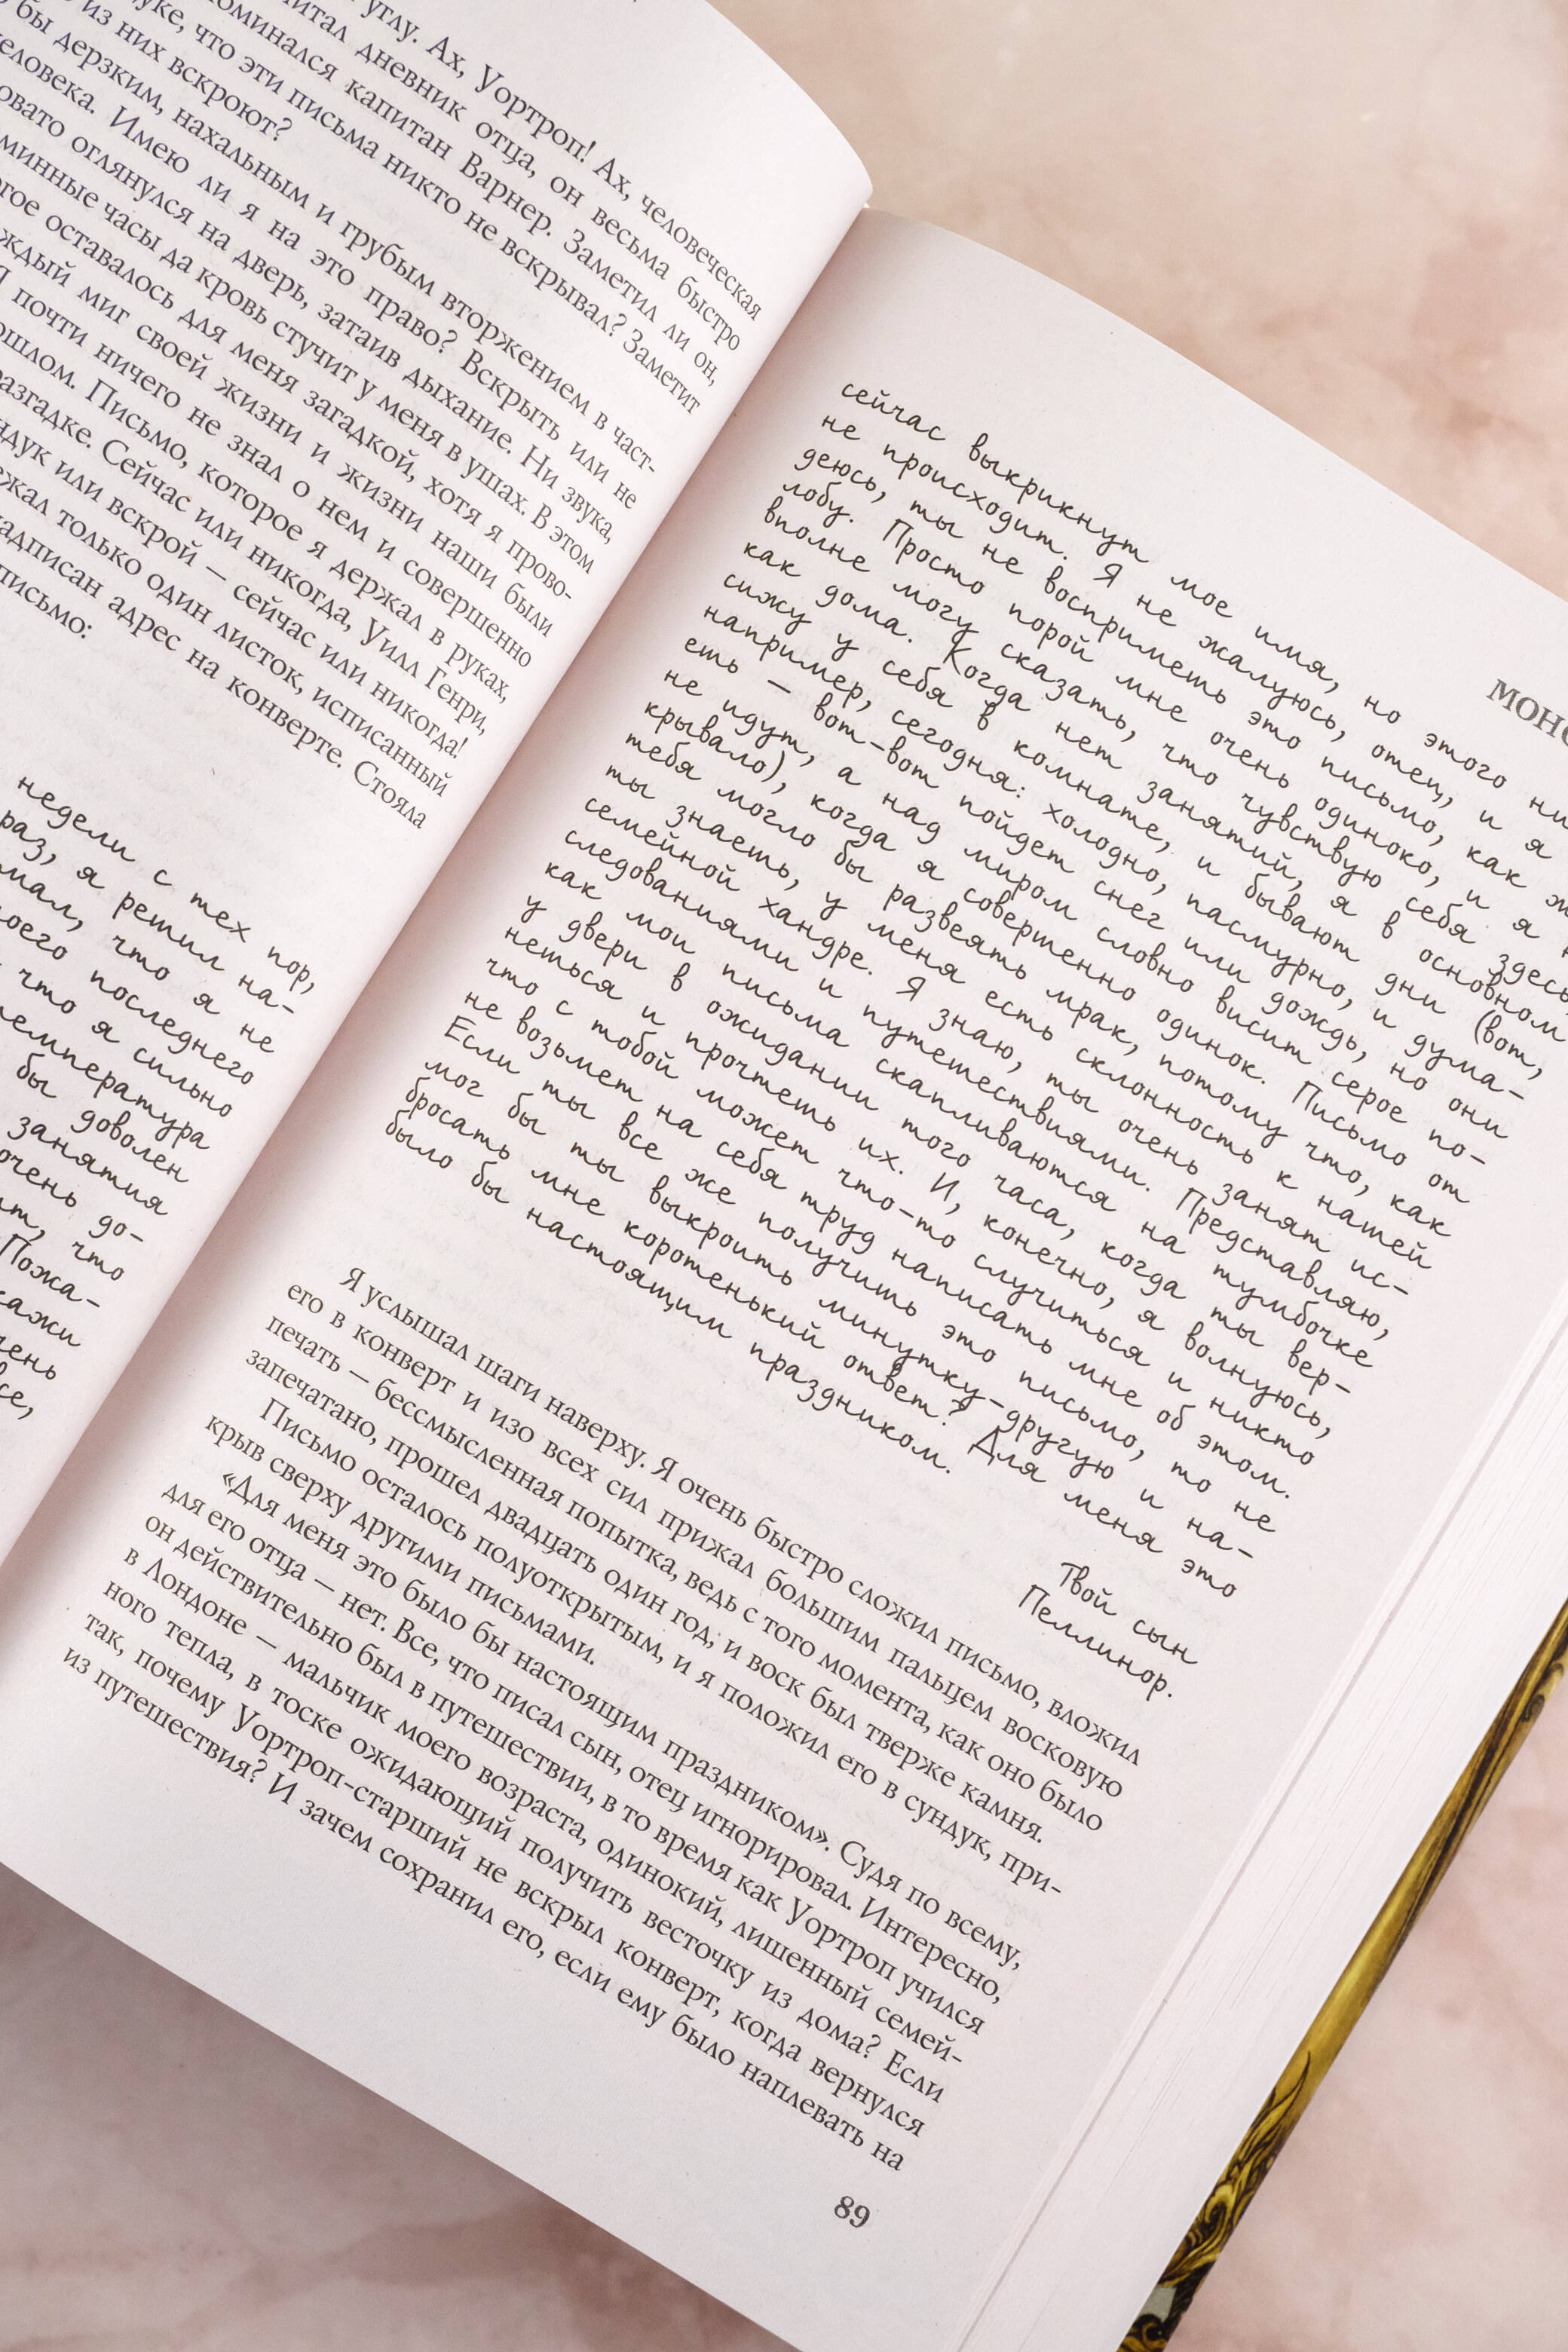 углу. Ах, Уортроп! Ах, человеческая
итал дневник отца, он весьма быстро
оминался капитан Варнер. Заметил ли он,
уке, что эти письма никто не вскрывал? Заметит
из них вскроют?
бы дерзким, нахальным и грубым вторжением в част-
еловека. Имею ли я на это право? Вскрыть или не
овато оглянулся на дверь, затаив дыхание. Ни звука,
минные часы да кровь стучит у меня в ушах. В этом
гое оставалось для меня загадкой, хотя я прово-
ждый миг своей жизни и жизни наши были
Я почти ничего не знал о нем и совершенно
ошлом. Письмо, которое я держал в руках,
азгадке. Сейчас или никогда, Уилл Генри,
ндук или вскрой – сейчас или никогда!
жал только один листок, исписанный
адписан адрес на конверте. Стояла
письмо:
недели с тех пор,
раз, я решил на-
мал, что я не
моего последнего
что я сильно
температура
бы доволен
занятия
очень до-
ит, что
Пожа-
кажи
чень
се,
МОНС
сейчас выкрикнут мое имя, но этого ни
не происходит. Я не жалуюсь, отец, и я
деюсь, ты не восприметь это письмо, как ж
лобу. Просто порой мне очень одиноко, и я н
вполне могу сказать, что чувствую себя здесь
как дома. Когда нет занятий, я в основном
сижу у себя в комнате, и бывают дни (вот,
например, сегодня: холодно, пасмурно, и дума-
еть – вот-вот пойдет снег или дождь, но они
не идут, а над миром словно висит серое по-
крывало), когда я совершенно одинок. Письмо от
тебя могло бы развеять мрак, потому что, как
ты знаеть, у меня есть склонность к натей
семейной хандре. Я знаю, ты очень занят ис-
следованиями и путетествиями. Представляю,
как мои письма скапливаются на тумбочке
у двери в ожидании того часа, когда ты вер-
неться и прочтеть их. И, конечно, я волнуюсь,
что с тобой может что-то случиться и никто
не возьмет на себя труд написать мне об этом.
Если ты все же получить это письмо, то не
мог бы ты выкроить минутку-другую и на-
бросать мне коротенький ответ? Для меня это
было бы настоящим праздником.
Твой сын
Пеллинор.
Я услышал шаги наверху. Я очень быстро сложил письмо, вложил
его в конверт и изо всех сил прижал большим пальцем восковую
печать – бессмысленная попытка, ведь с того момента, как оно было
запечатано, прошел двадцать один год, и воск был тверже камня.
Письмо осталось полуоткрытым, и я положил его в сундук, при-
крыв сверху другими письмами.
«Для меня это было бы настоящим праздником». Судя по всему,
для его отца – нет. Все, что писал сын, отец игнорировал. Интересно,
он действительно был в путешествии, в то время как Уортроп учился
в Лондоне – мальчик моего возраста, одинокий, лишенный семей-
ного тепла, в тоске ожидающий получить весточку из дома? Если
так, почему Уортроп-старший не вскрыл конверт, когда вернулся
из путешествия? И зачем сохранил его, если ему было наплевать на
89